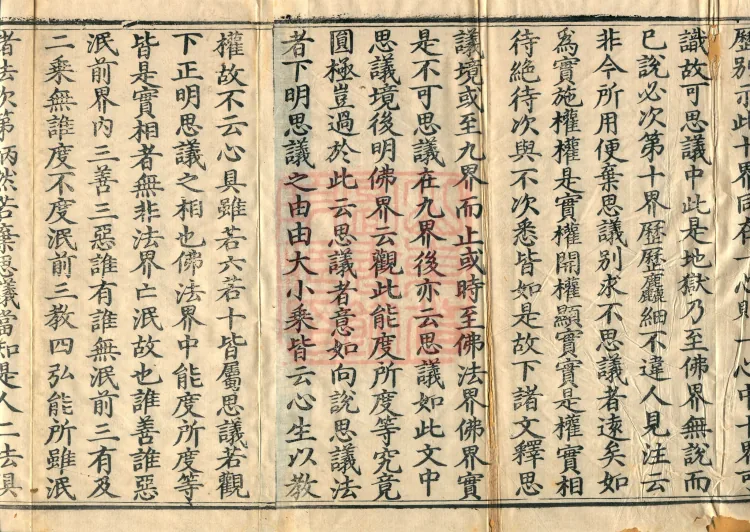 歷別示此十界同在一心則一心中十界可
識故可思議中此是地獄乃至佛界無說而
已說必次第十界歷歷麤細不違人見注云
非今所用便棄思議別求不思議者遠矣如
為實施權權是實權開權顯實實是權實相
待絕待次與不次悉皆如是故下諸文釋思
議境或至九界而止或時至佛法界佛界實
是不可思議在九界後亦云思議如此文中
思議境後明佛界云觀此能度所度等究竟
圓極豈過於此云思議者意如向說思議法
者下明思議之由由大小乗皆云心生以教
權故不云心具雖若六若十皆屬思議若觀
下正明思議之相也佛法界中能度所度等
皆是實相者無非法界亡泯故也誰善誰惡
泯前界內三善三惡誰有誰無泯前三有及
二乗無誰度不度泯前三教四弘能所雖泯
者法次第炳然若棄思議當知是人二法具